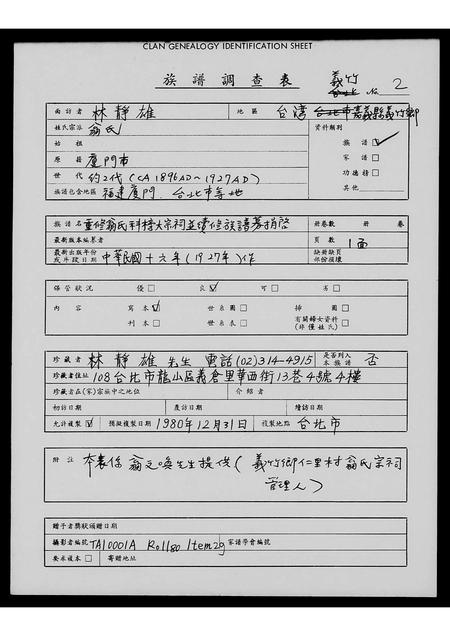 CLAN GENEALOGY IDENTIFICATION SHEET
族譜調查表 義竹 No. 2
面訪者 林靜雄 地區 台灣 台北市嘉義縣義竹鄉
姓氏宗派 翁氏 資料類別
始祖 族譜 ☑
原籍 廈門市 家譜 □
世代 約2代(CA 1896AD~1927AD) 功德榜 □
族譜包含地區 福建廈門、台北市等地 其他
族譜名 重修翁氏科特大宗祠並續修族譜募捐啓 冊卷數 冊 卷
最新版本編纂者 頁數 1面
最新出版年份或手段日期 中華民國十六年(1927年)作 缺冊缺頁部份損壞
保管狀況 優 □ 良 ☑ 可 □ 劣 □
內容 寫本 ☑ 世系圖 □ 插圖 □
刊本 □ 世系表 □ 有關婦女資料(非僅姓氏) □
珍藏者 林靜雄先生 電話(02)314-4915 是否列入本族譜 否
珍藏者住址 108台北市龍山區義倉里華西街13巷4號4樓
珍藏者在(家)宗族中之地位 介紹者
初訪日期 度訪日期 續訪日期
允許複製 ☑ 預擬複製日期 1980年12月31日 複製地點 台北市
附註 本表係翁之煥先生提供(義竹鄉仁里村翁氏宗祠
管理人)
贈予者獎狀頒贈日期
攝影者編號 TA10001A Roll80 Item29 家譜學會編號
要求複本 □ 寄贈地址